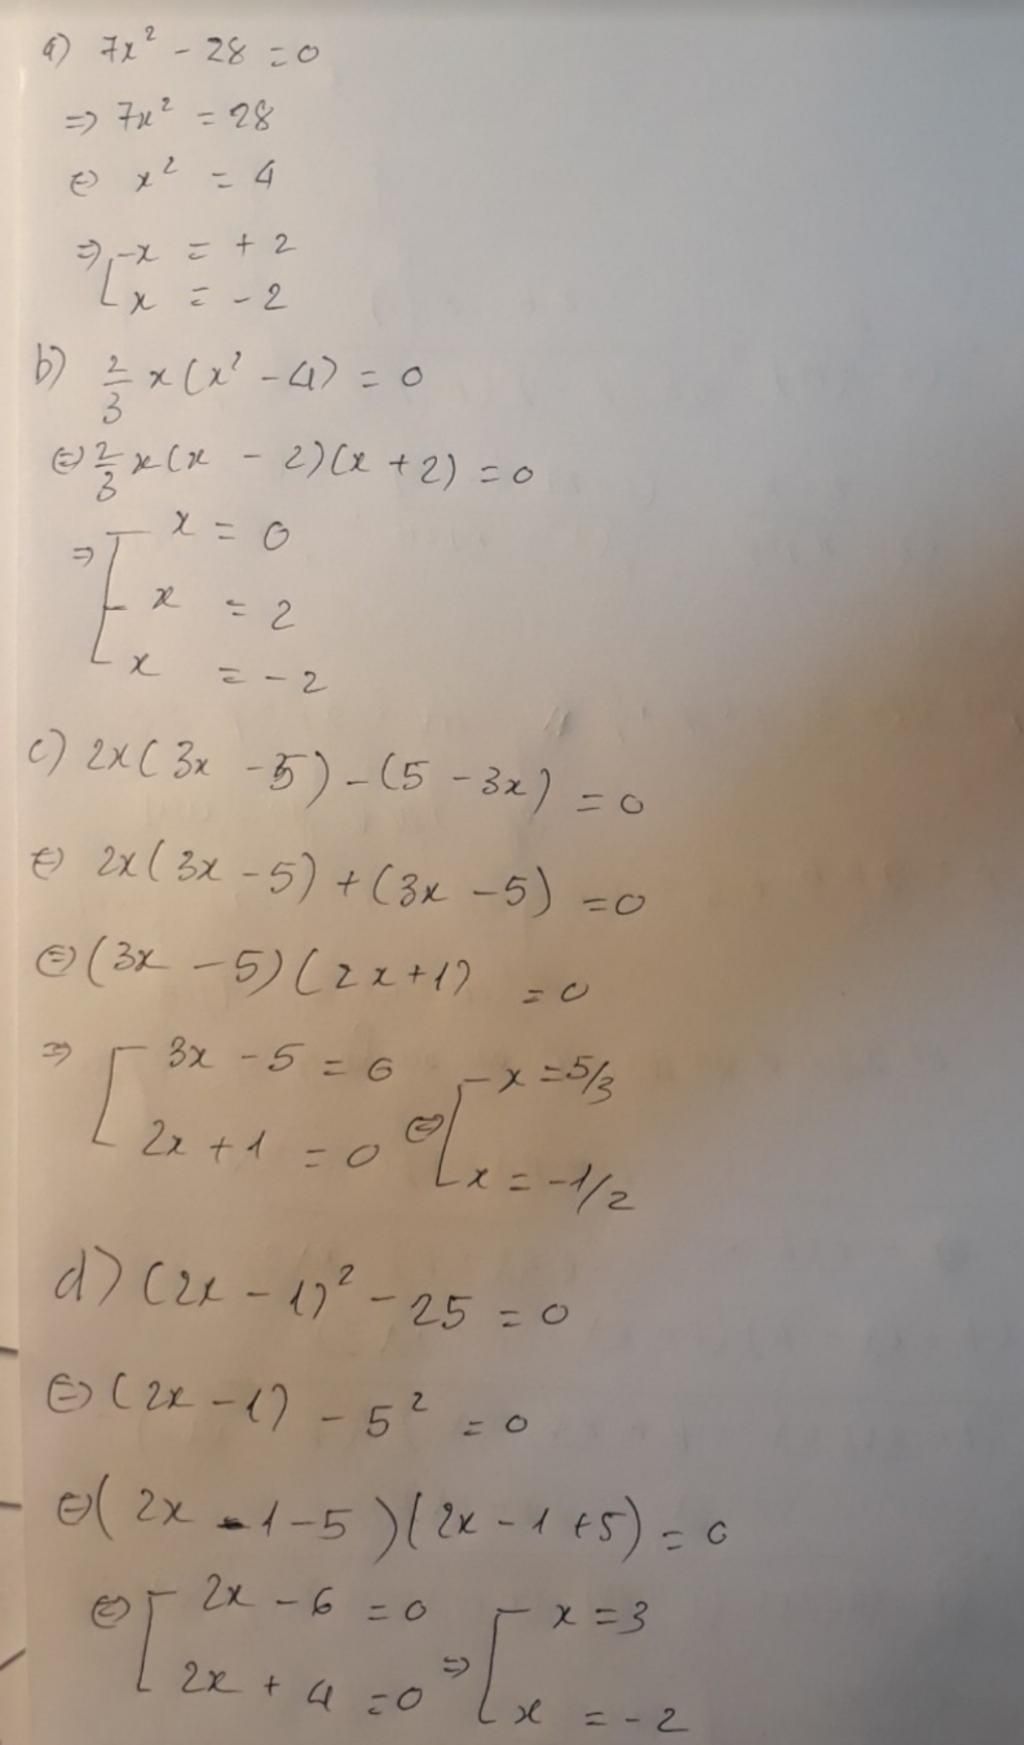 a) 7x² - 28 = 0
=> 7x² = 28
<=> x² = 4
=> [ x = + 2
[ x = - 2
b) 2/3 x(x² - 4) = 0
<=> 2/3 x(x - 2)(x + 2) = 0
=> [ x = 0
[ x = 2
[ x = - 2
c) 2x(3x - 5) - (5 - 3x) = 0
<=> 2x(3x - 5) + (3x - 5) = 0
<=> (3x - 5)(2x + 1) = 0
=> [ 3x - 5 = 0 <=> [ x = 5/3
[ 2x + 1 = 0 [ x = -1/2
d) (2x - 1)² - 25 = 0
<=> (2x - 1) - 5² = 0
<=> (2x - 1 - 5)(2x - 1 + 5) = 0
<=> [ 2x - 6 = 0 => [ x = 3
[ 2x + 4 = 0 [ x = - 2